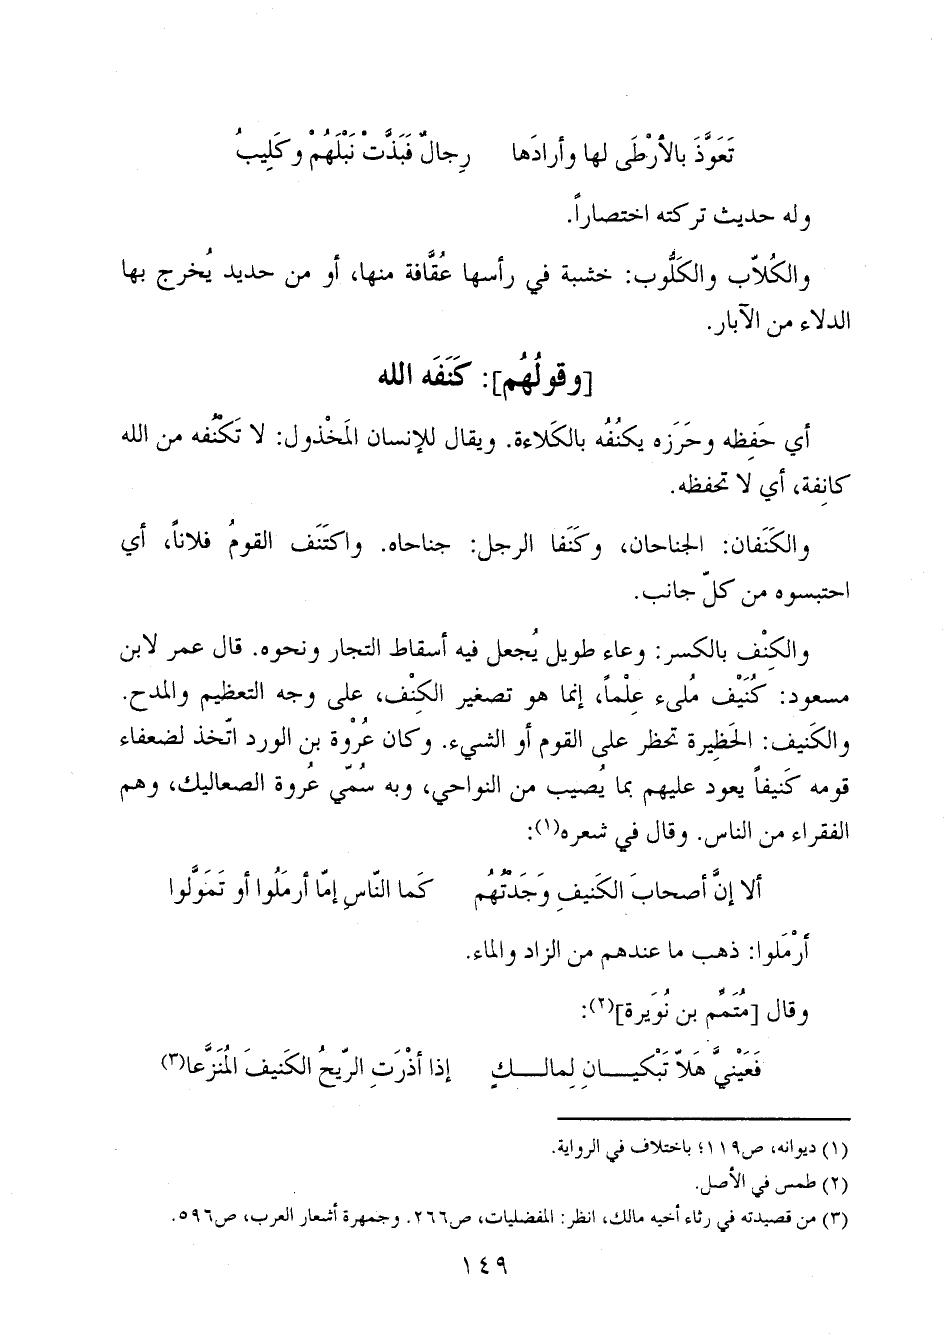 تَعَوَّذَ بالأرْطَى لها وأرادَها رِجالٌ فَبَذَّتْ نَبْلَهُمْ وكَلِيبُ
وله حديث تركته اختصاراً.
والكُلاّب والكَلُّوب: خشبة في رأسها عُقَّافة منها، أو من حديد يُخرج بها
الدلاء من الآبار.
[وقولُهُم]: كَنَفَه الله
أي حَفِظه وحَرَزَه يكنُفُه بالكَلاءة. ويقال للإنسان المَخْذول: لا تَكْنُفه من الله
كانِفة، أي لا تحفظه.
والكَنَفان: الجناحان، وكَنَفا الرجل: جناحاه. واكتَنَف القومُ فلاناً، أي
احتبسوه من كلّ جانب.
والكِنْف بالكسر: وعاء طويل يُجعل فيه أسقاط التجار ونحوه. قال عمر لابن
مسعود: كُنَيْف مُلىء عِلْماً، إنما هو تصغير الكِنْف، على وجه التعظيم والمدح.
والكَنيف: الحَظِيرة تحظر على القوم أو الشيء. وكان عُرْوة بن الورد اتّخذ لضعفاء
قومه كَنيفاً يعود عليهم بما يُصيب من النواحي، وبه سُمّي عُروة الصعاليك، وهم
الفقراء من الناس. وقال في شعره(١):
ألا إنَّ أصحابَ الكَنيفِ وَجَدْتُهُم كَما النّاسِ إمّا أرمَلُوا أو تَمَوَّلوا
أرْمَلوا: ذهب ما عندهم من الزاد والماء.
وقال [مُتَمَّم بن نُوَيرة](٢):
فَعَيْنيَّ هَلاّ تَبْكيـــــانِ لِمالـــــكٍ إذا أذْرَتِ الرّيحُ الكَنيفَ المُنَزَّعا(٣)
(١) ديوانه، ص١١٩؛ باختلاف في الرواية.
(٢) طمس في الأصل.
(٣) من قصيدته في رثاء أخيه مالك، انظر: المفضليات، ص٢٦٦. وجمهرة أشعار العرب، ص٥٩٦.
١٤٩